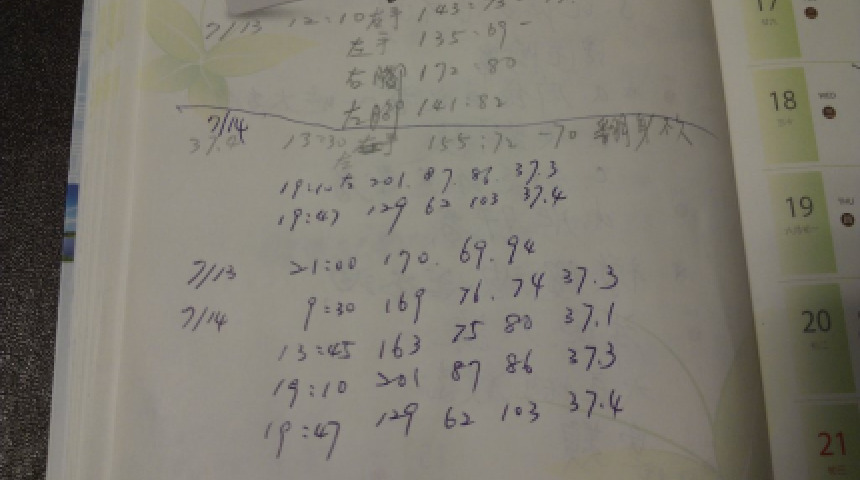 7/13 12:10 右手 143:73
左手 135:69-
右腳 172:80
左腳 141:82
7/14
37.4 13:30 155:72 -70
19:10 左 201. 87. 86. 37.3
19:47 129 62 103 37.4
7/13 21:00 170. 69. 94
7/14 9:30 169 76. 74 37.3
13:45 163 75 80 37.1
19:10 201 87 86 37.3
19:47 129 62 103 37.4
17
18 WED
19 THU
20
21